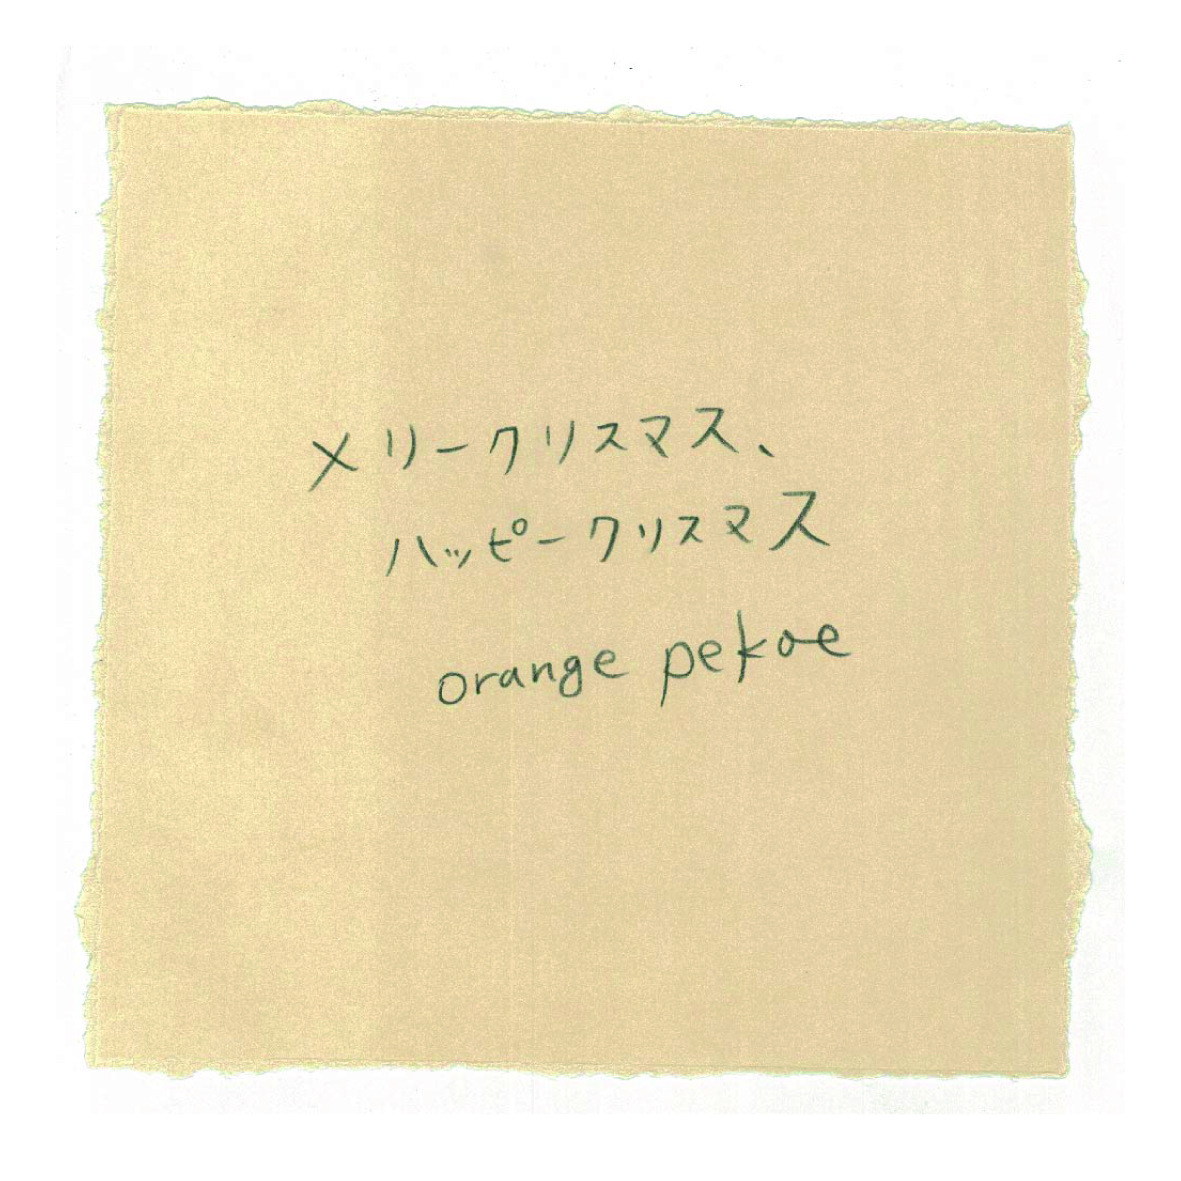 メリークリスマス、
ハッピークリスマス
orange pekoe